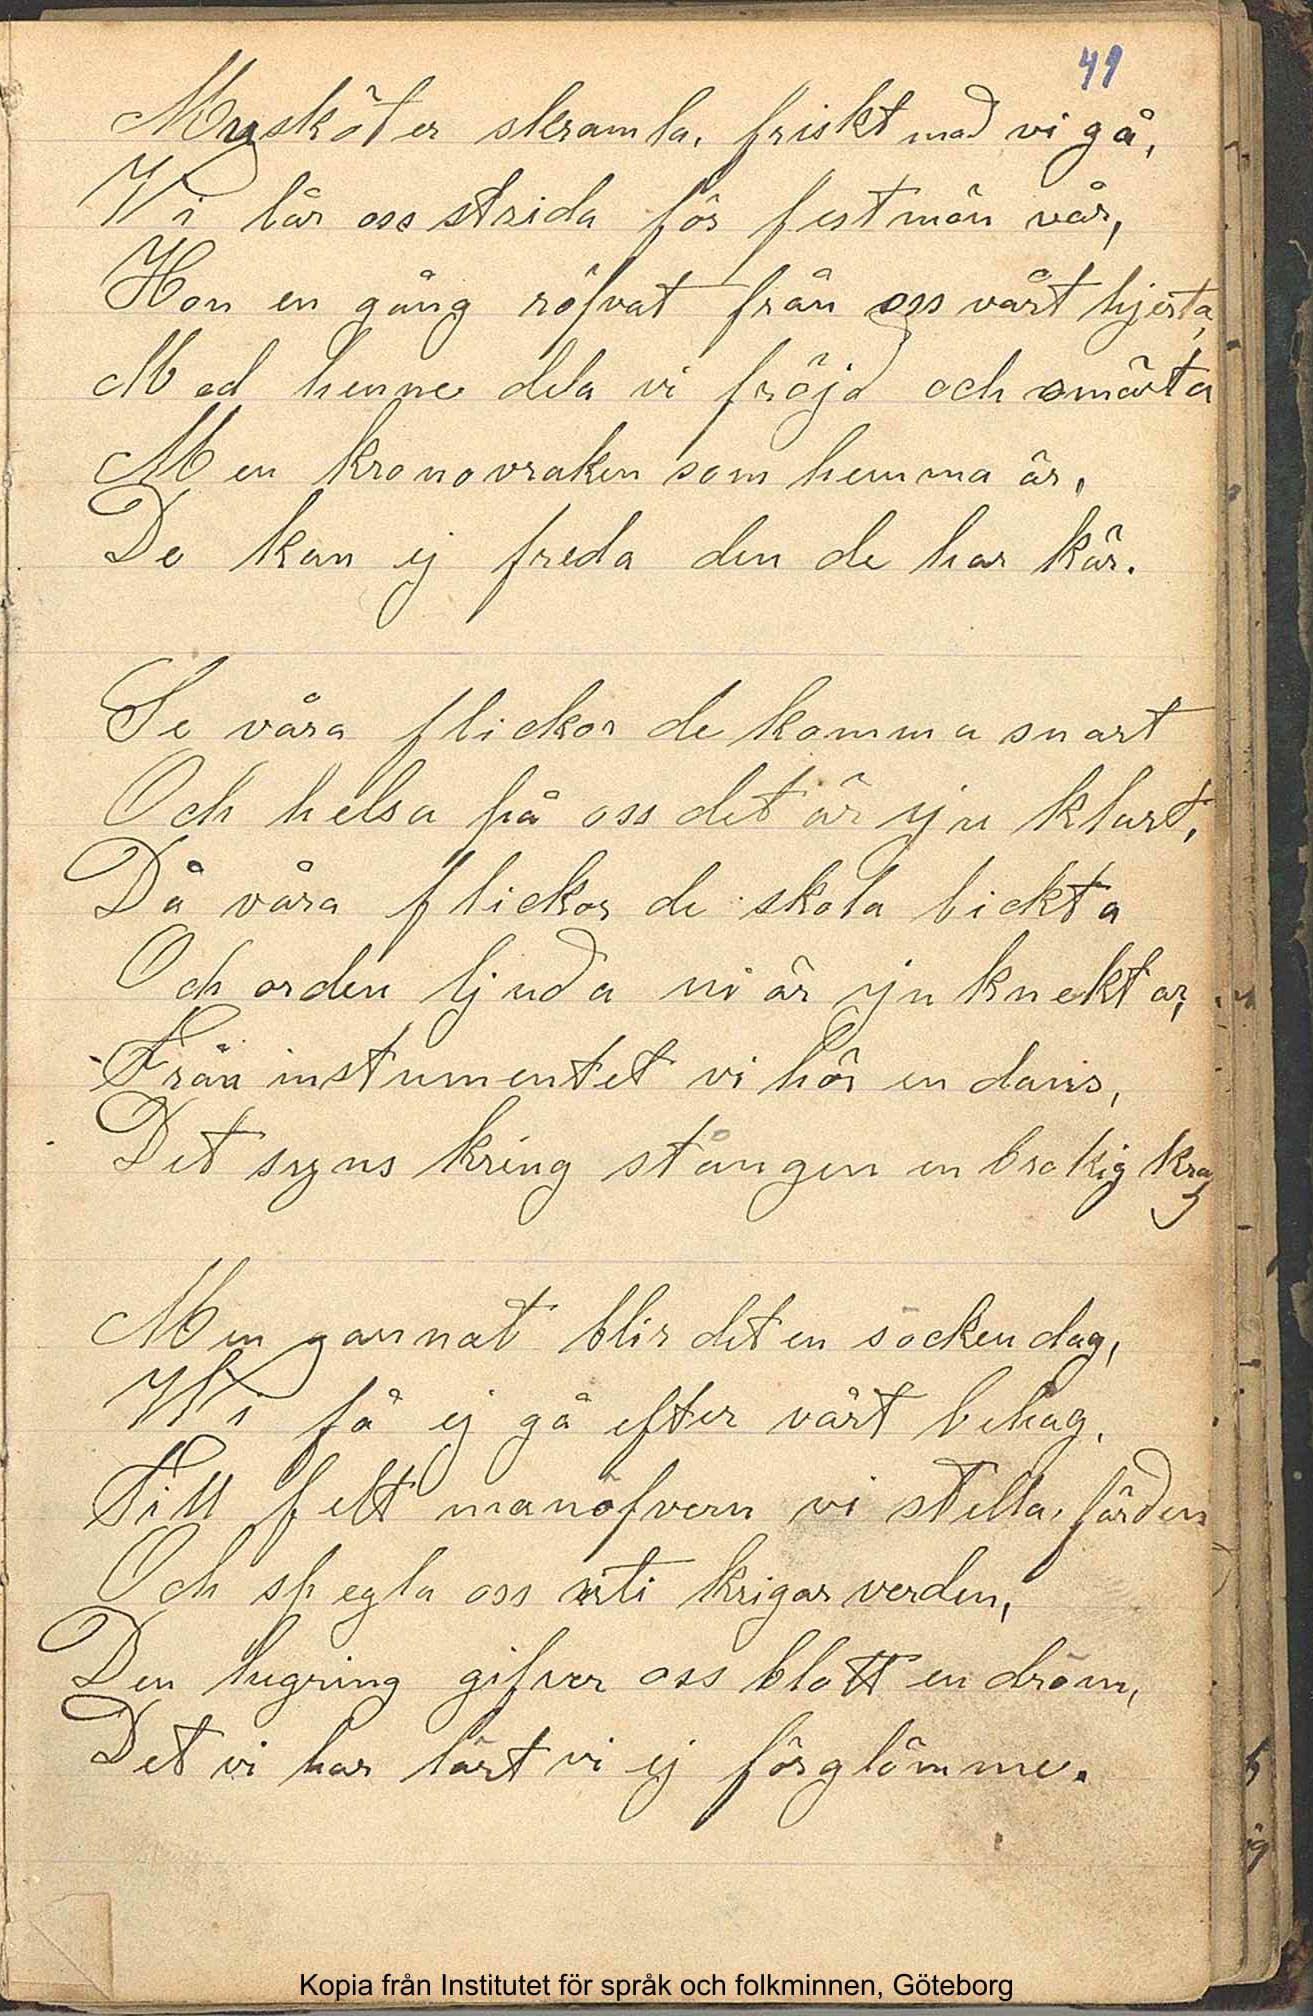 49
Musköter skramla, friskt mod vi gå,
Vi lär oss strida för festmön vår,
Hon en gång röfvat från oss vårt hjerta,
Med henne dela vi fröjd och smärta
Men kronovraken som hemma är,
De kan ej freda den de har kär.
Se våra flickor de komma snart
Och helsa på oss det är ju klart,
Då våra flickor de skola bickta
Och orden ljuda ni är ju knektar,
Från instumentet vi hör en dans,
Det syns kring stången en brokig kra
Men annat blir det en söckendag,
Wi få ej gå efter vårt behag.
Till felt manöfvern vi stella färden
Och spegla oss uti krigarverden,
Den hugring gifver oss blott en dröm,
Det vi har lärt vi ej förglömme.
Kopia från Institutet för språk och folkminnen, Göteborg